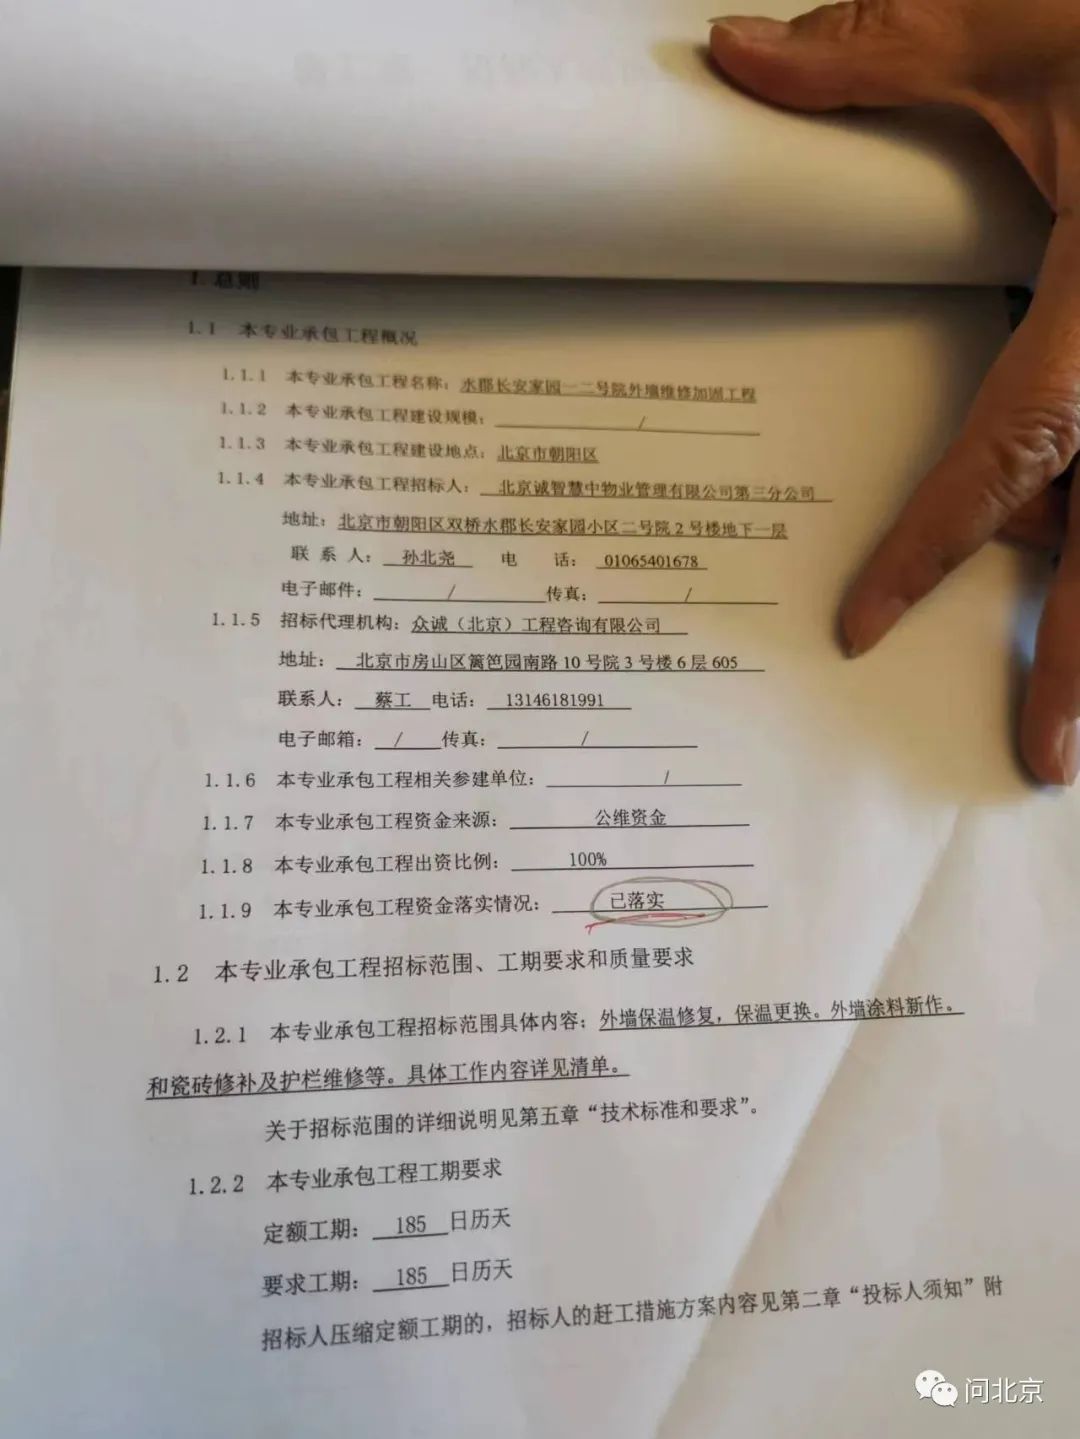 1. 总则
1.1 本专业承包工程概况
1.1.1 本专业承包工程名称：水郡长安家园一二号院外墙维修加固工程
1.1.2 本专业承包工程建设规模： /
1.1.3 本专业承包工程建设地点：北京市朝阳区
1.1.4 本专业承包工程招标人： 北京诚智慧中物业管理有限公司第三分公司
地址：北京市朝阳区双桥水郡长安家园小区二号院 2 号楼地下一层
联 系 人： 孙北尧 电 话： 01065401678
电子邮件： / 传真： /
1.1.5 招标代理机构：众诚（北京）工程咨询有限公司
地址： 北京市房山区篱笆园南路 10 号院 3 号楼 6 层 605
联系人： 蔡工 电话： 13146181991
电子邮箱： / 传真： /
1.1.6 本专业承包工程相关参建单位： /
1.1.7 本专业承包工程资金来源： 公维资金
1.1.8 本专业承包工程出资比例： 100%
1.1.9 本专业承包工程资金落实情况： 已落实
1.2 本专业承包工程招标范围、工期要求和质量要求
1.2.1 本专业承包工程招标范围具体内容：外墙保温修复，保温更换。外墙涂料新作。
和瓷砖修补及护栏维修等。具体工作内容详见清单。
关于招标范围的详细说明见第五章“技术标准和要求”。
1.2.2 本专业承包工程工期要求
定额工期： 185 日历天
要求工期： 185 日历天
招标人压缩定额工期的，招标人的赶工措施方案内容见第二章“投标人须知”附
问北京